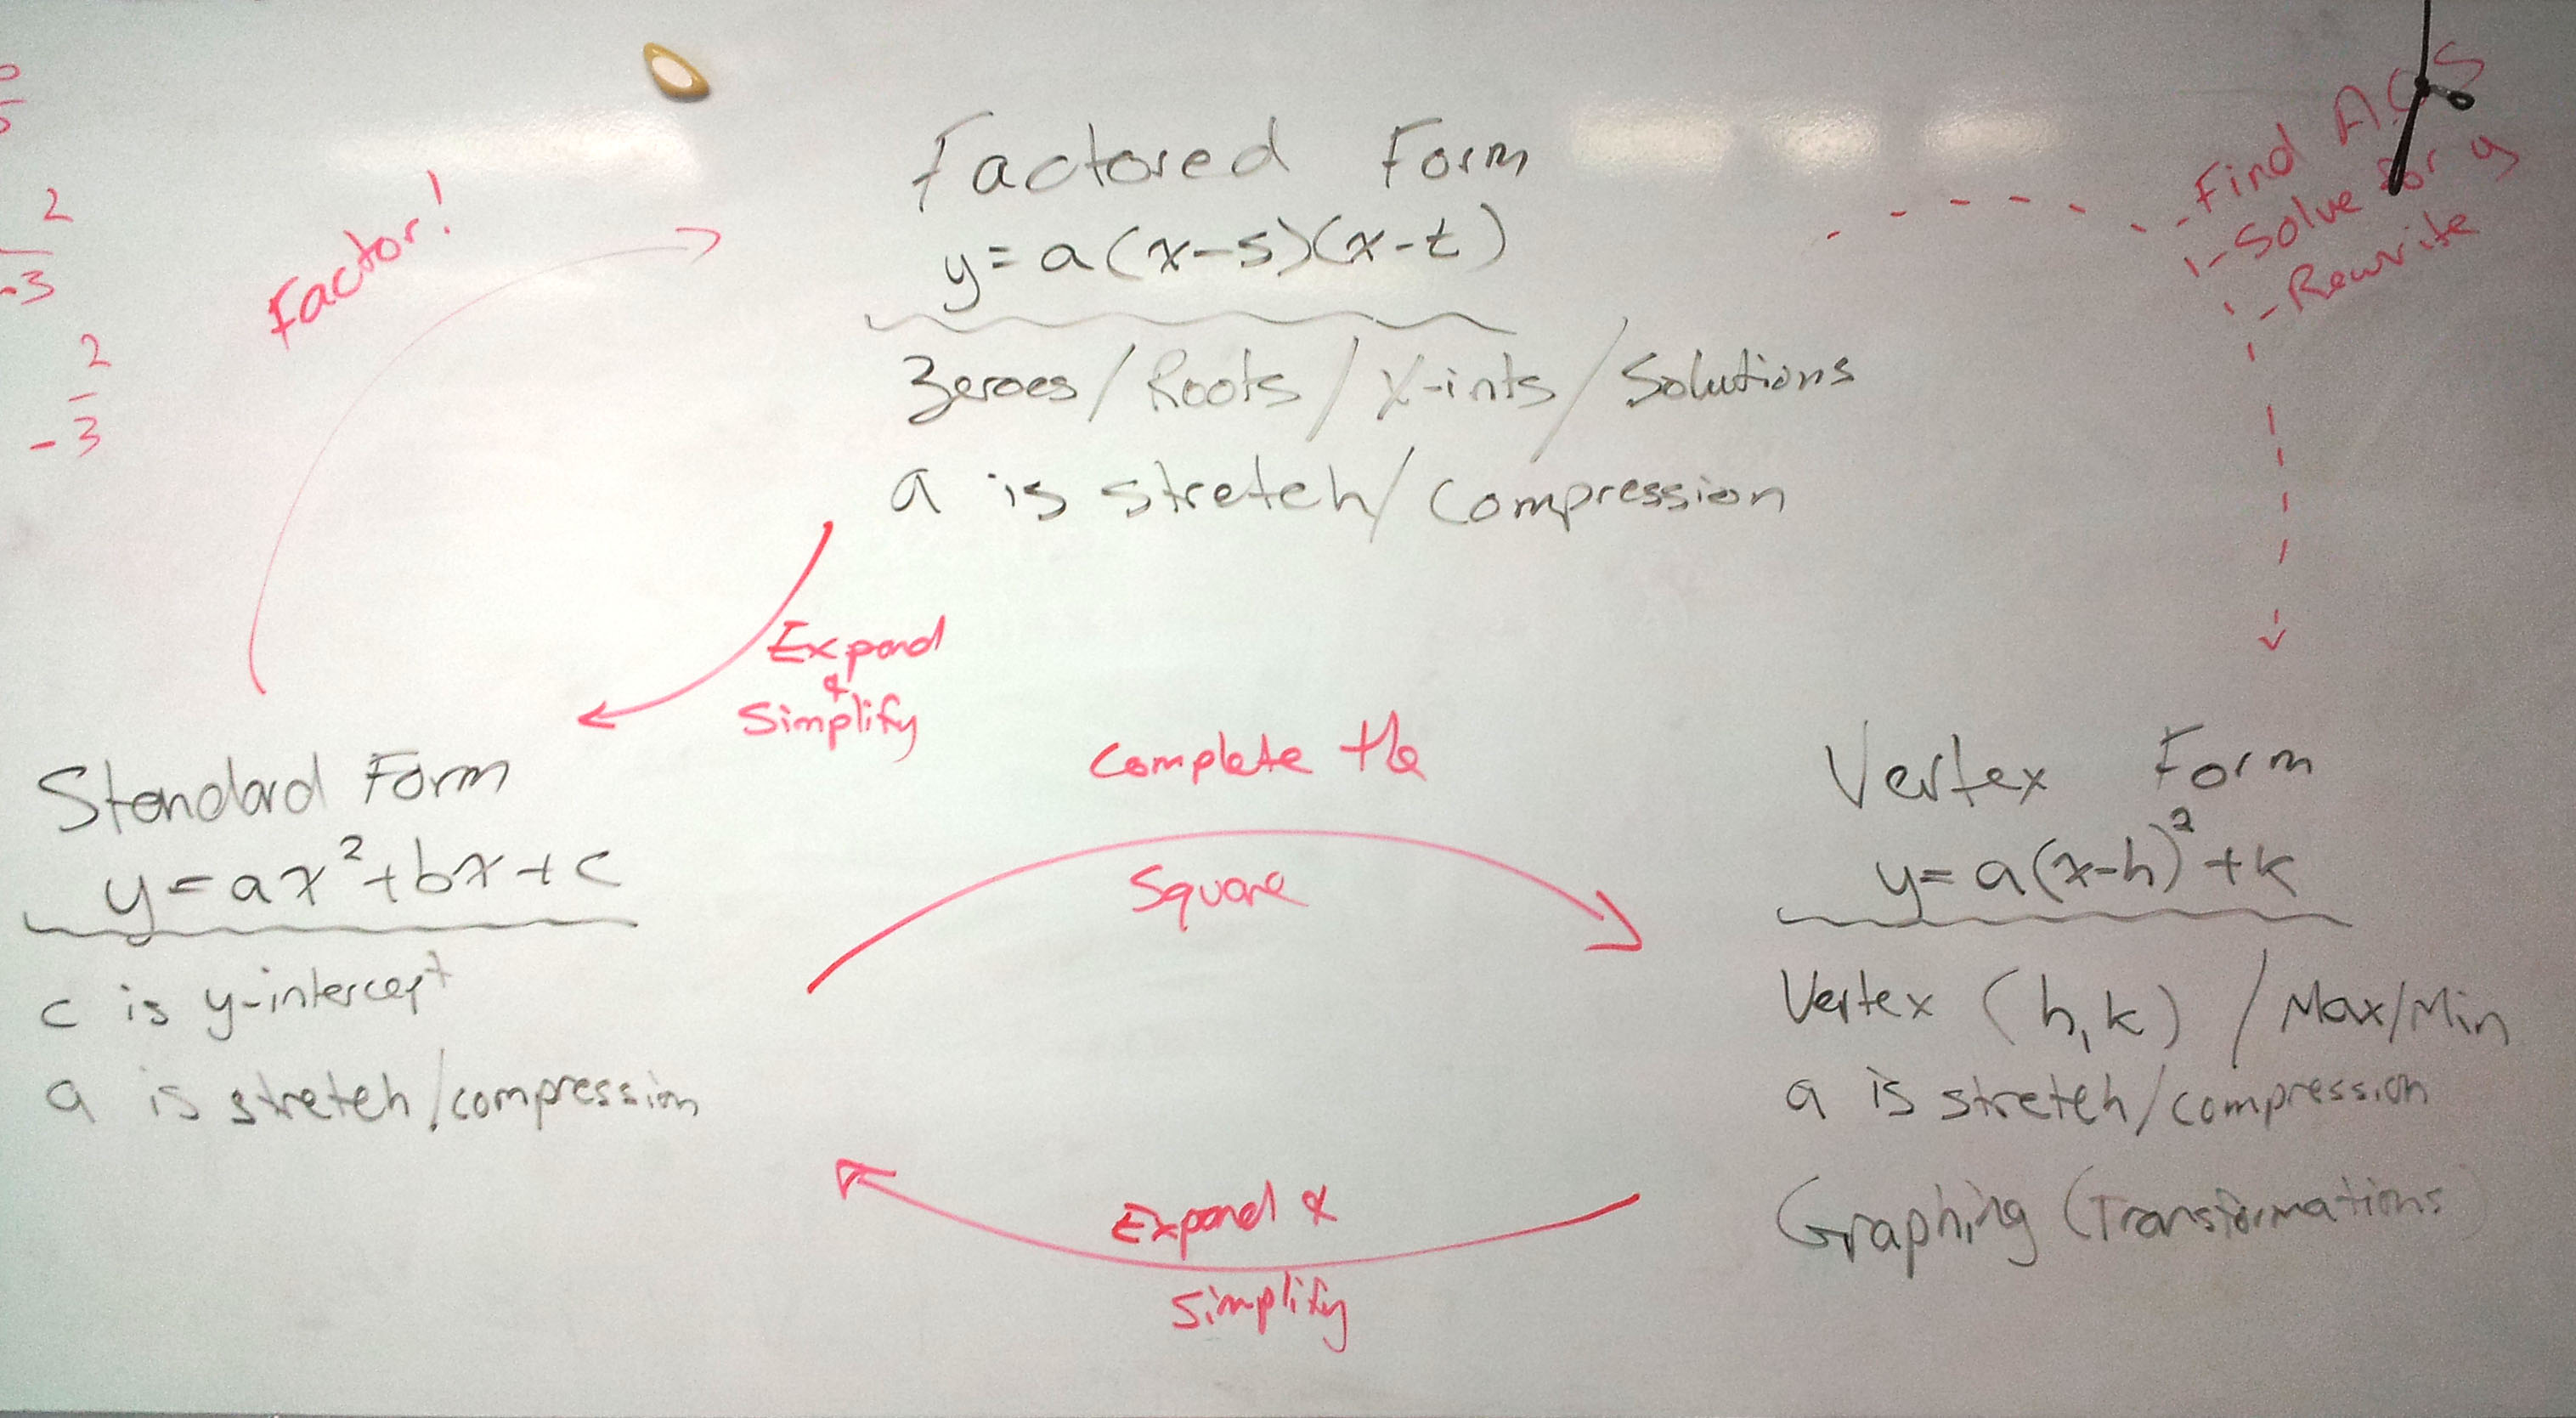 Factored Form
y = a(x-s)(x-t)
Zeroes / Roots / X-ints / Solutions
a is stretch / compression
Factor!
- Find AOS
- Solve for y
- Rewrite
Expand
&
Simplify
Standard Form
y = ax² + bx + c
c is y-intercept
a is stretch / compression
Complete the
Square
Expand &
Simplify
Vertex Form
y = a(x-h)² + k
Vertex (h, k) / Max/Min
a is stretch / compression
Graphing (Transformations)
2
-3
2
-3